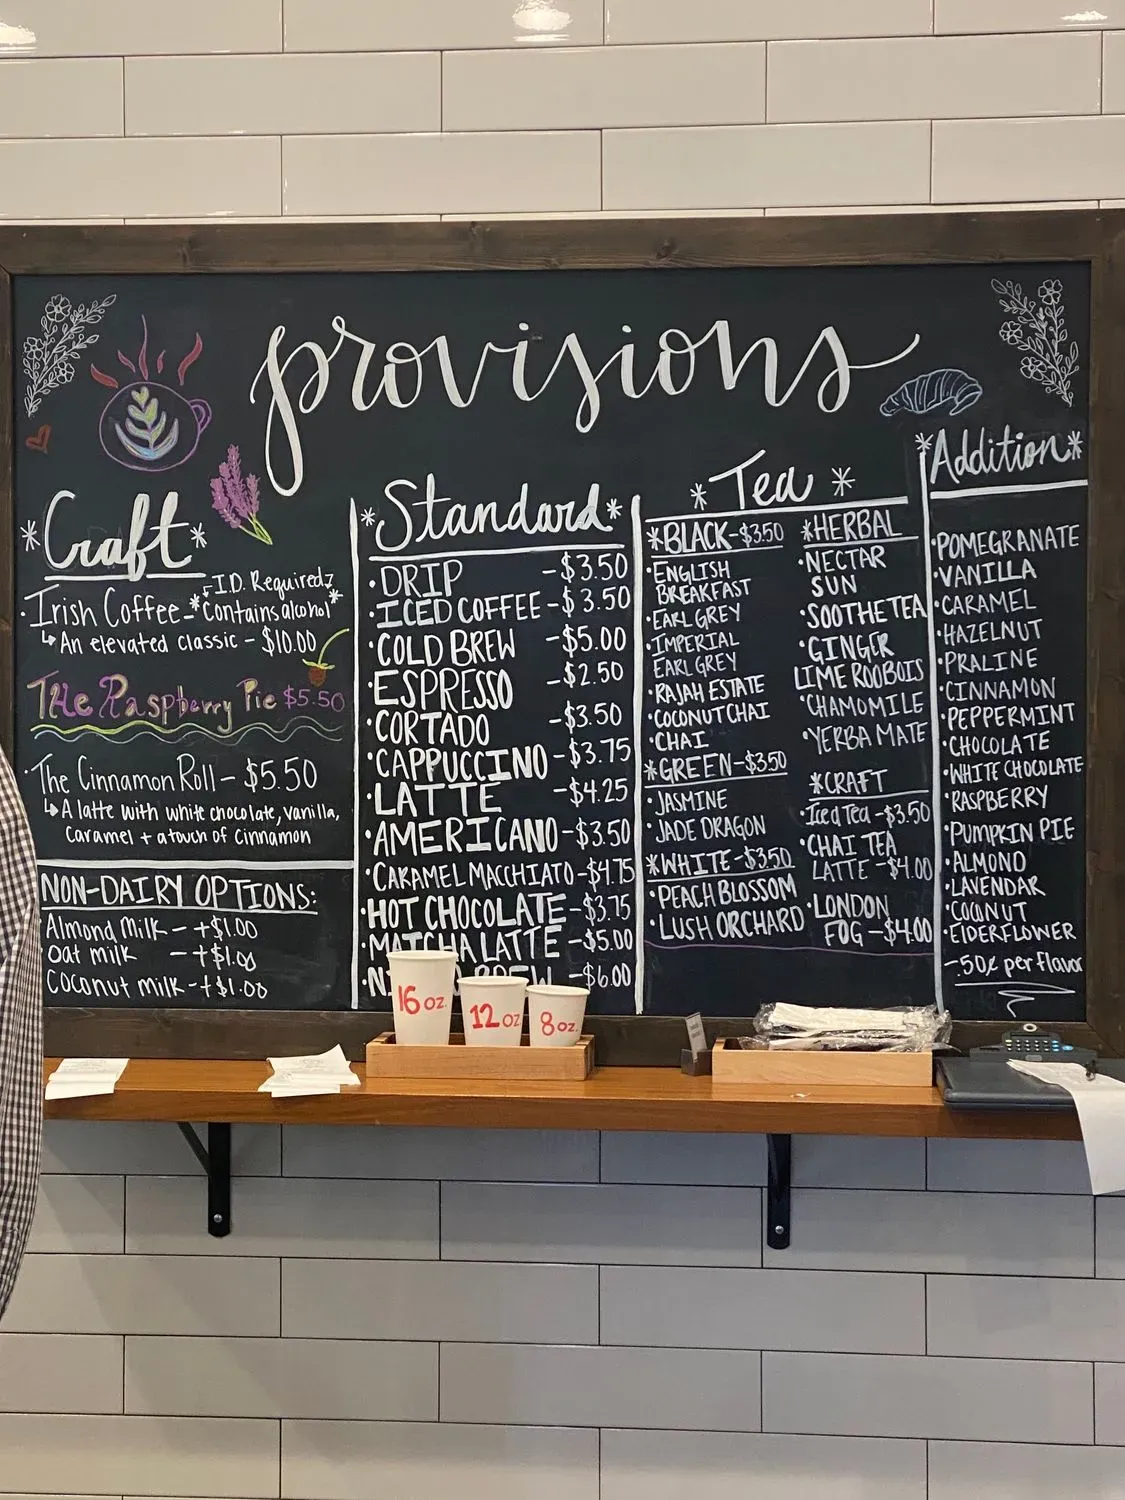 provisions
*Craft*
Irish Coffee - *I.D. Required
Contains alcohol*
An elevated classic - $10.00
THe Raspberry Pie $5.50
The Cinnamon Roll - $5.50
A latte with white chocolate, vanilla,
Caramel + a touch of cinnamon
NON-DAIRY OPTIONS:
Almond Milk - +$1.00
Oat milk - +$1.00
Coconut milk - +$1.00
*Standard*
DRIP -$3.50
ICED COFFEE -$3.50
COLD BREW -$5.00
ESPRESSO -$2.50
CORTADO -$3.50
CAPPUCCINO -$3.75
LATTE -$4.25
AMERICANO -$3.50
CARAMEL MACCHIATO -$4.75
HOT CHOCOLATE -$3.75
MATCHA LATTE -$5.00
BREW -$6.00
*Tea*
*BLACK -$3.50
ENGLISH
BREAKFAST
EARL GREY
IMPERIAL
EARL GREY
RAJAH ESTATE
COCONUT CHAI
CHAI
*GREEN -$3.50
JASMINE
JADE DRAGON
*WHITE -$3.50
PEACH BLOSSOM
LUSH ORCHARD
*HERBAL
NECTAR
SUN
SOOTHE TEA
GINGER
LIME ROOBOIS
CHAMOMILE
YERBA MATE
*CRAFT
Iced Tea -$3.50
CHAI TEA
LATTE -$4.00
LONDON
FOG -$4.00
*Addition*
POMEGRANATE
VANILLA
CARAMEL
HAZELNUT
PRALINE
CINNAMON
PEPPERMINT
CHOCOLATE
WHITE CHOCOLATE
RASPBERRY
PUMPKIN PIE
ALMOND
LAVENDAR
COCONUT
ElDERFLOWER
-.50¢ per flavor
16 oz.
12 oz
8 oz.